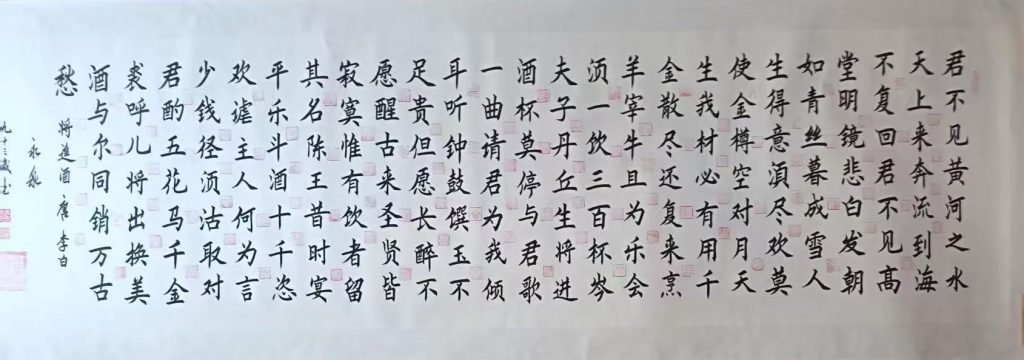 君不见黄河之水
天上来奔流到海
不复回君不见高
堂明镜悲白发朝
如青丝暮成雪人
生得意湏尽欢莫
使金樽空对月天
生我材必有用千
金散尽还复来烹
羊宰牛且为乐会
湏一饮三百杯岑
夫子丹丘生将进
酒杯莫停与君歌
一曲请君为我倾
耳听钟鼓馔玉不
足贵但愿长醉不
愿醒古来圣贤皆
寂寞惟有饮者留
其名陈王昔时宴
平乐斗酒十千恣
欢谑主人何为言
少钱径湏沽取对
君酌五花马千金
裘呼儿将出换美
酒与尔同销万古
愁
将進酒 唐 李白
九十三岁书